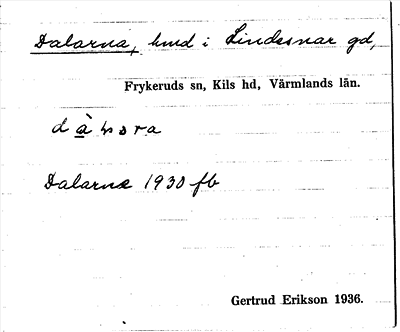 Dalarna, hmd i Lindesnar gd,
Frykeruds sn, Kils hd, Värmlands län.
Dalarna 1930 fb
Gertrud Erikson 1936.